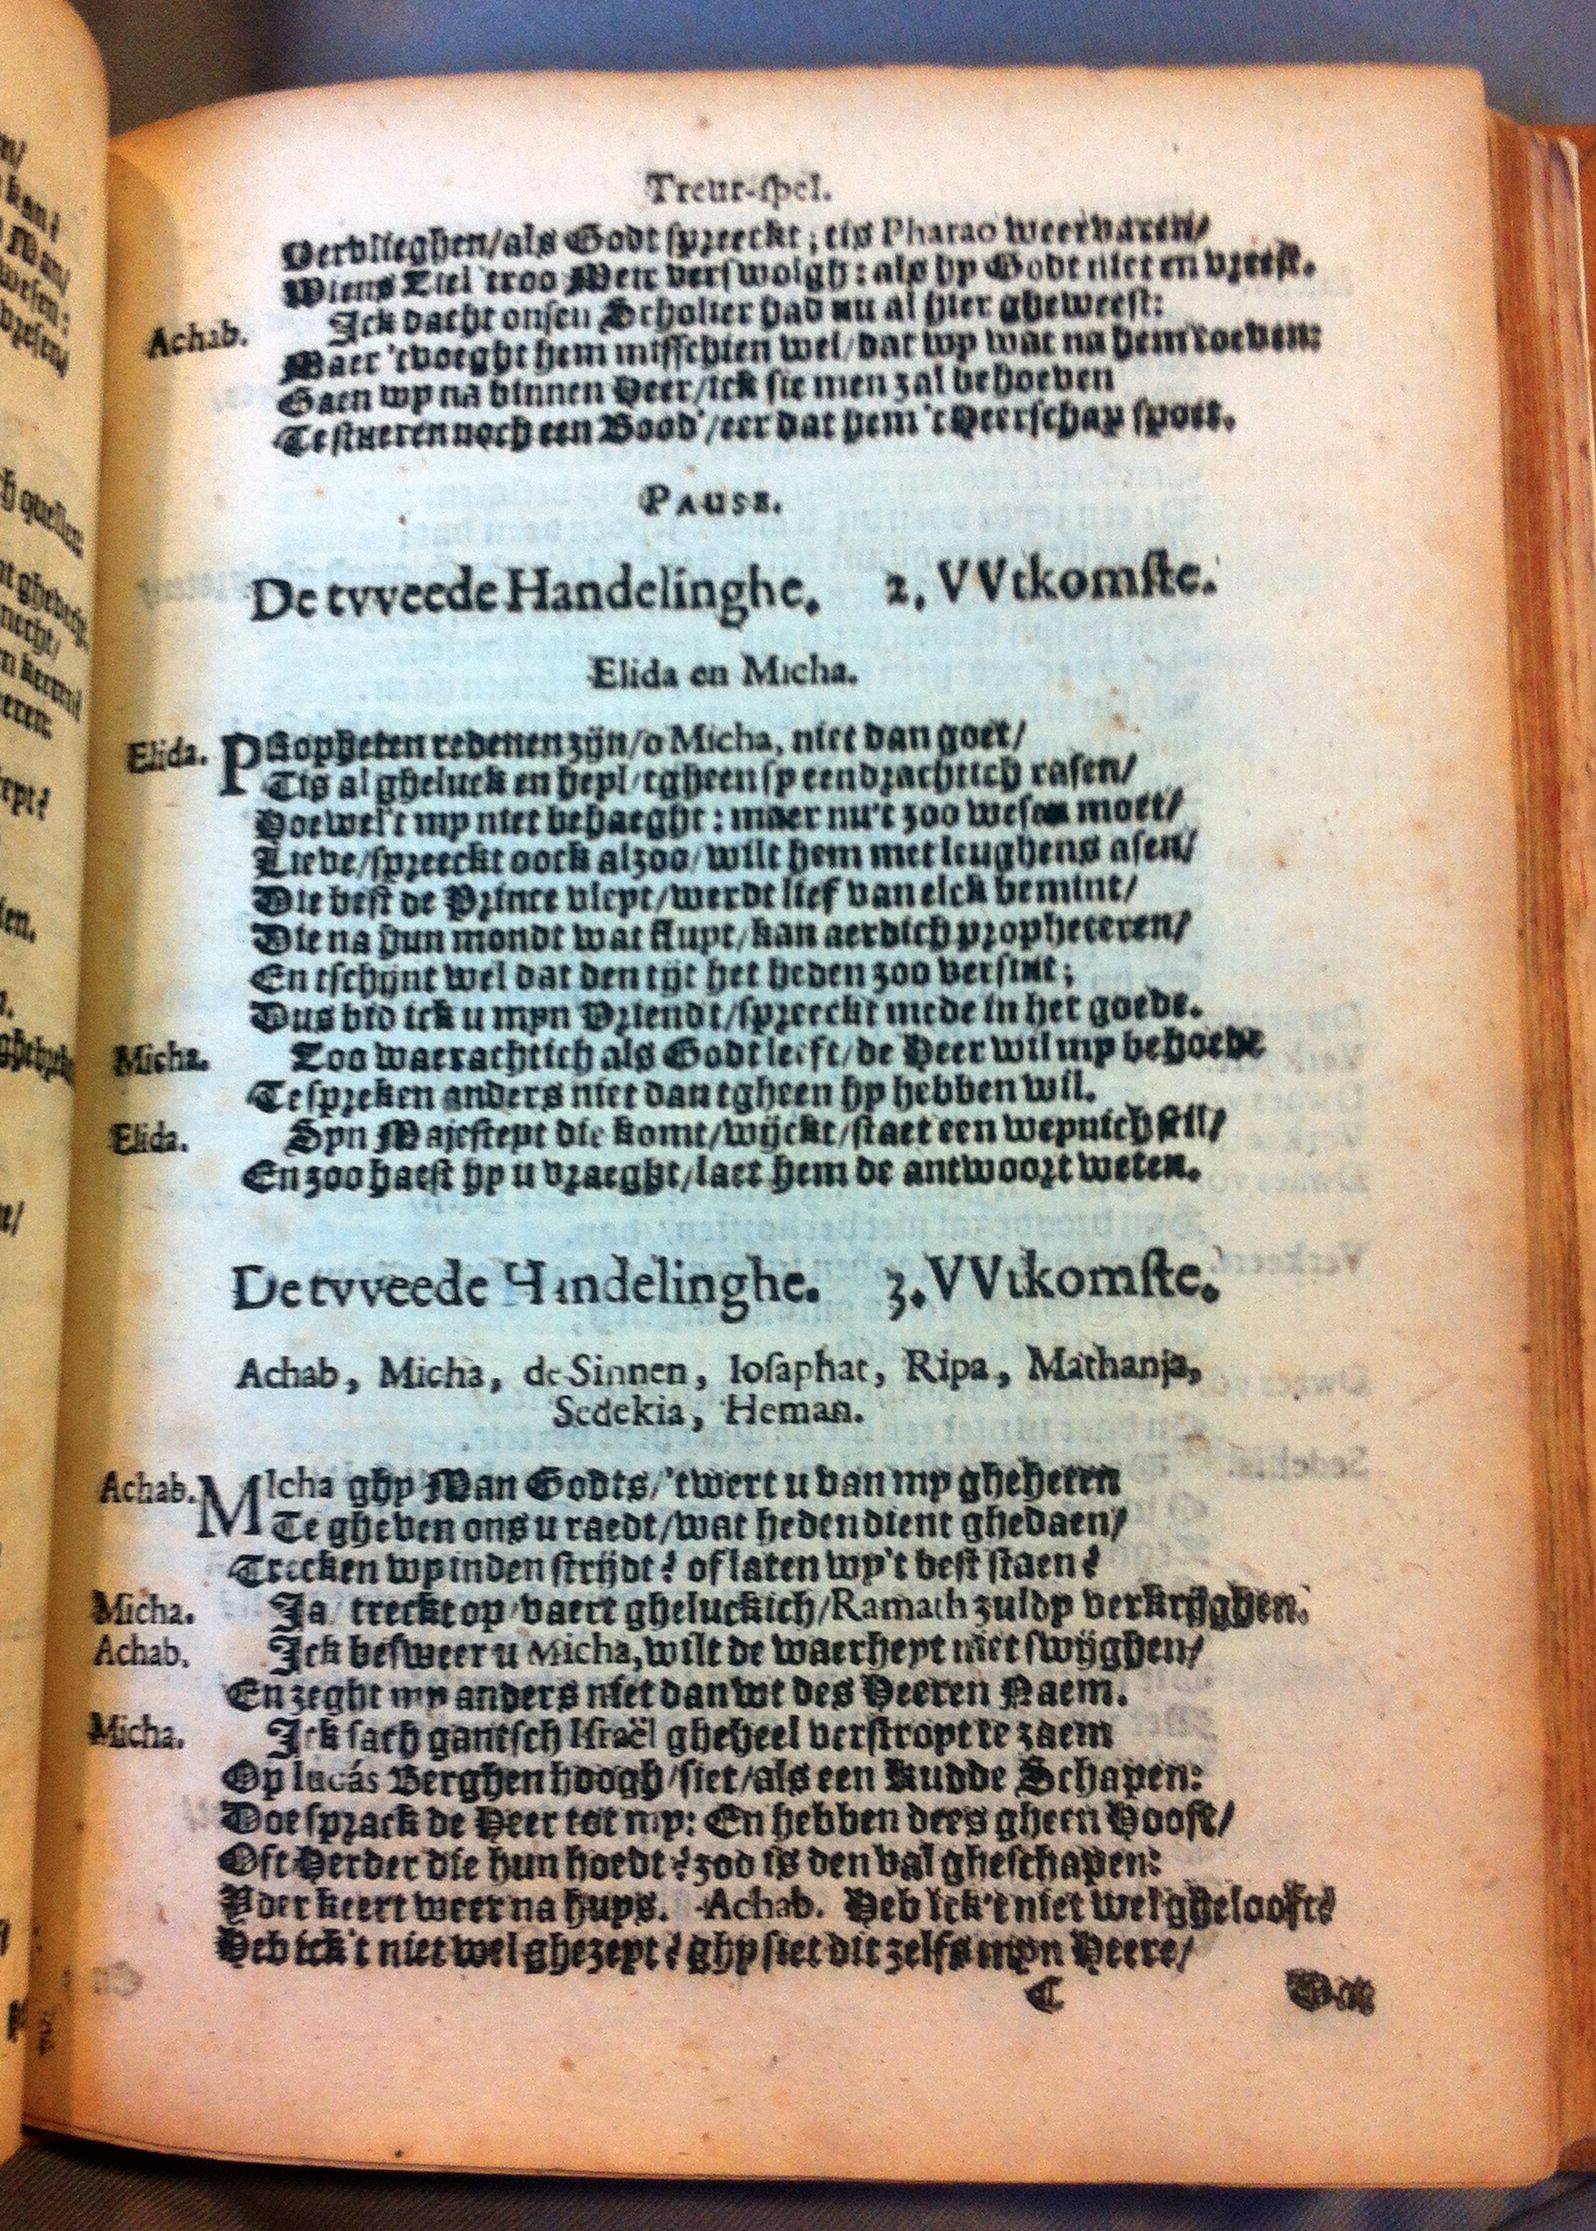 Treur-spel.
Vervlieghen/als Godt spreeckt; tis Pharao weervaren/
Wiens Ziel troo Meir verswolgh: als hy Godt niet en vreest.
Achab. Ick dacht onsen Scholier had nu al hier gheweest:
Maer 'tvoeght hem misschien wel/dat wy wat na hem toeven:
Gaen wy na binnen Heer/ick sie men zal behoeven
Te stueren noch een Bood'/eer dat hem 't Heerschap spoet.
PAUSE.
De tvveede Handelinghe. 2. VVtkomste.
Elida en Micha.
Elida. PRopheten redenen zijn/o Micha, niet dan goet/
Tis al gheluck en heyl/tgheen sy eendrachtich rasen/
Hoewel't my niet behaeght: maer nu't zoo wesen moet/
Lieve/spreeckt oock alzoo/wilt hem met leughens asen/
Die best de Prince vleyt/werdt lief van elck bemint/
Die na hun mondt wat fluyt/kan aerdich propheteren/
En tschijnt wel dat den tijt het heden zoo versint;
Dus bid ick u myn Vriendt/spreeckt mede in het goede.
Micha. Zoo waerachtich als Godt leeft/de Heer wil my behoede
Te spreken anders niet dan tgheen hy hebben wil.
Elida. Syn Majesteyt die komt/wijckt/staet een weynich stil/
En zoo haest hy u vraeght/laet hem de antwoort weten.
De tvveede Handelinghe. 3. VVtkomste.
Achab, Micha, de Sinnen, Iosaphat, Ripa, Mathanja,
Sedekia, Heman.
Achab. MIcha ghy Man Godts/'twert u van my gheheten
Te gheven ons u raedt/wat heden dient ghedaen/
Trecken wy inden strijdt? of laten wy't best staen?
Micha. Ja/treckt op/vaert gheluckich/Ramath zuldy verkrijghen.
Achab. Ick besweer u Micha, wilt de waerheyt niet swijghen/
En zeght my anders niet dan wt des Heeren Naem.
Micha. Ick sach gantsch Israël gheheel verstroyt te zaem
Op Iucás Berghen hoogh/siet/als een Kudde Schapen:
Doe sprack de Heer tot my: En hebben dees gheen Hooft/
Oft Herder die hun hoedt? zoo is den val gheschapen:
Yder keert weer na huys. Achab. Heb Ick't niet wel ghelooft?
Heb ick't niet wel ghezeyt? ghy siet dit zelfs myn Heere/
C